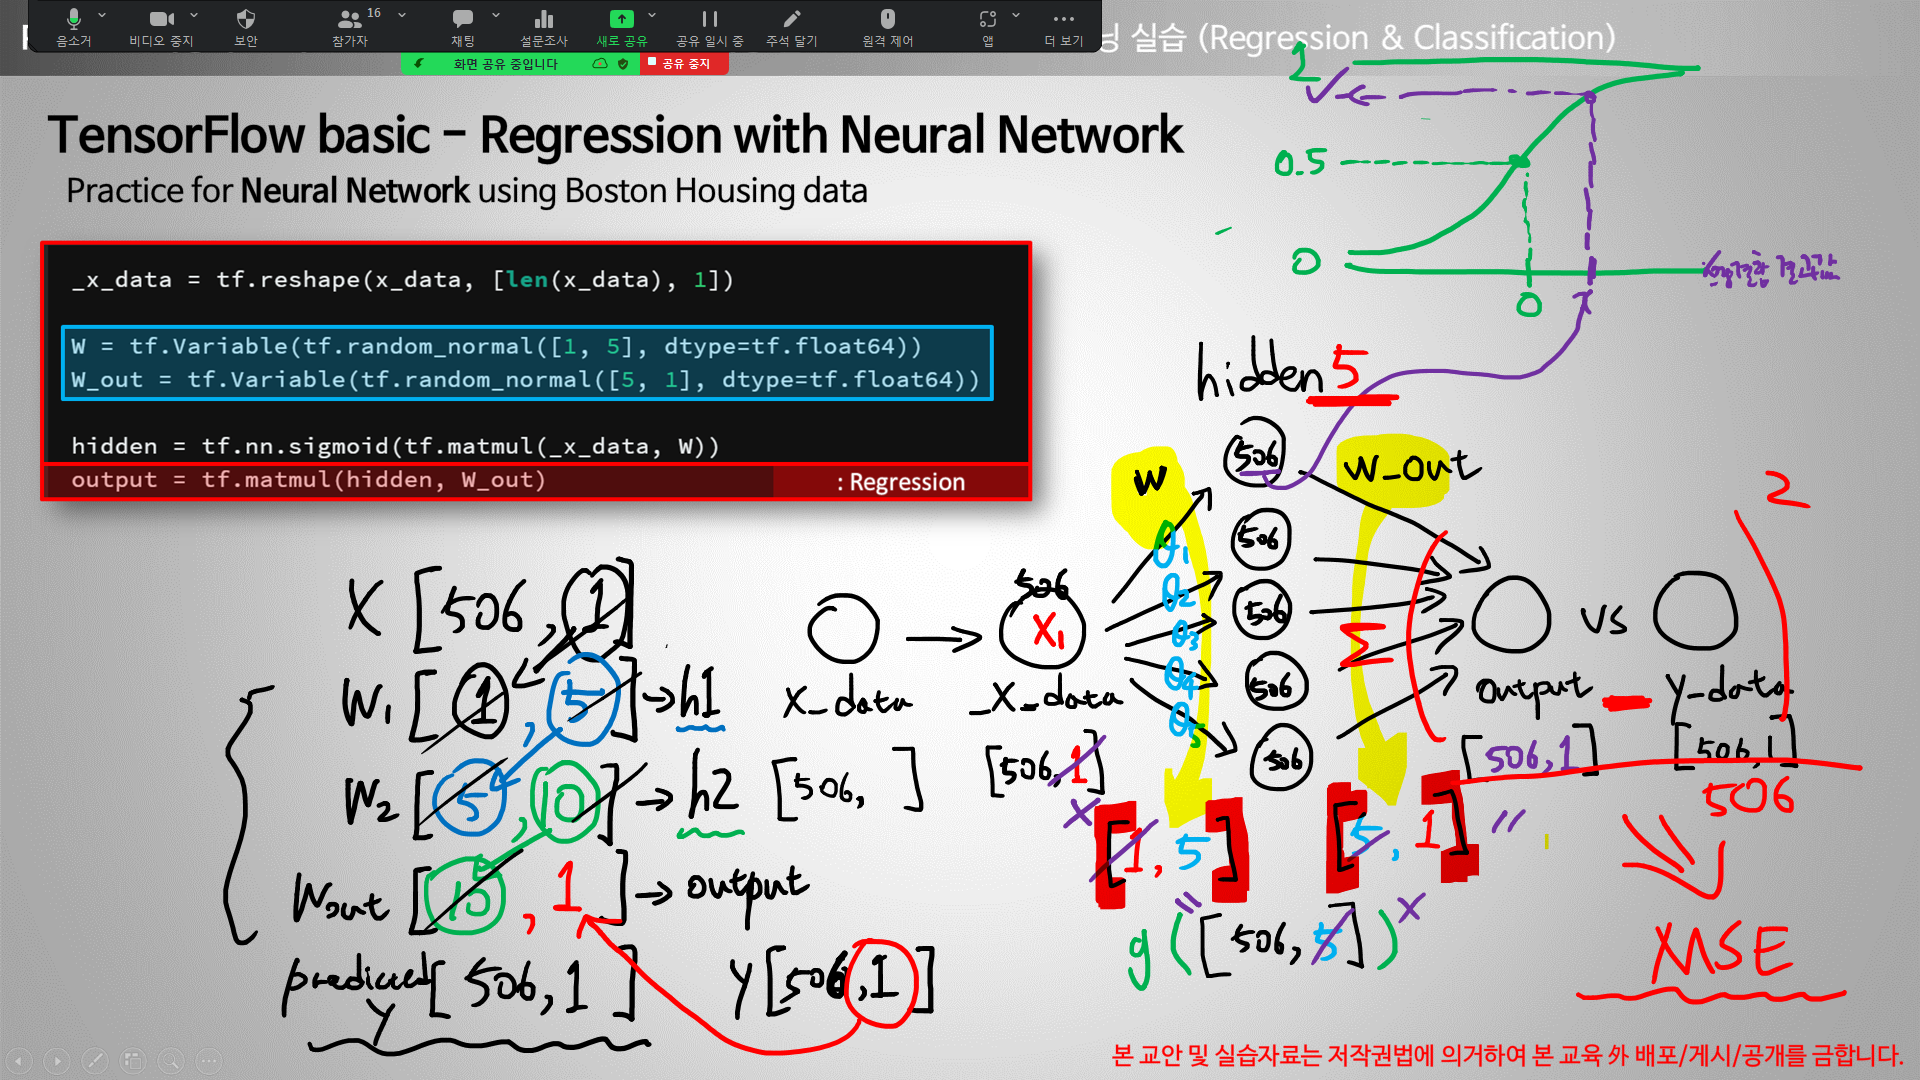 음소거
비디오 중지
보안
참가자
16
채팅
설문조사
새로 공유
공유 일시 중
주석 달기
원격 제어
앱
더 보기
화면 공유 중입니다
공유 중지
실습 (Regression & Classification)
TensorFlow basic – Regression with Neural Network
Practice for Neural Network using Boston Housing data
_x_data = tf.reshape(x_data, [len(x_data), 1])
W = tf.Variable(tf.random_normal([1, 5], dtype=tf.float64))
W_out = tf.Variable(tf.random_normal([5, 1], dtype=tf.float64))
hidden = tf.nn.sigmoid(tf.matmul(_x_data, W))
output = tf.matmul(hidden, W_out)
: Regression
1
0.5
0
0
x
hidden 5
W
W_out
506
506
506
506
506
θ1
θ2
θ3
θ4
θ5
Σ
2
506
X1
vs
X_data
_X_data
output
Y_data
[506, ]
[506,1]
[506,1]
[506,1]
506
x
[1, 5]
[5, 1]
g([506, 5])
x
MSE
X [506, 1]
W1 [1, 5] → h1
W2 [5, 10] → h2
Wout [10, 1] → output
predicted [506, 1]
y
Y [506, 1]
본 교안 및 실습자료는 저작권법에 의거하여 본 교육 외 배포/게시/공개를 금합니다.